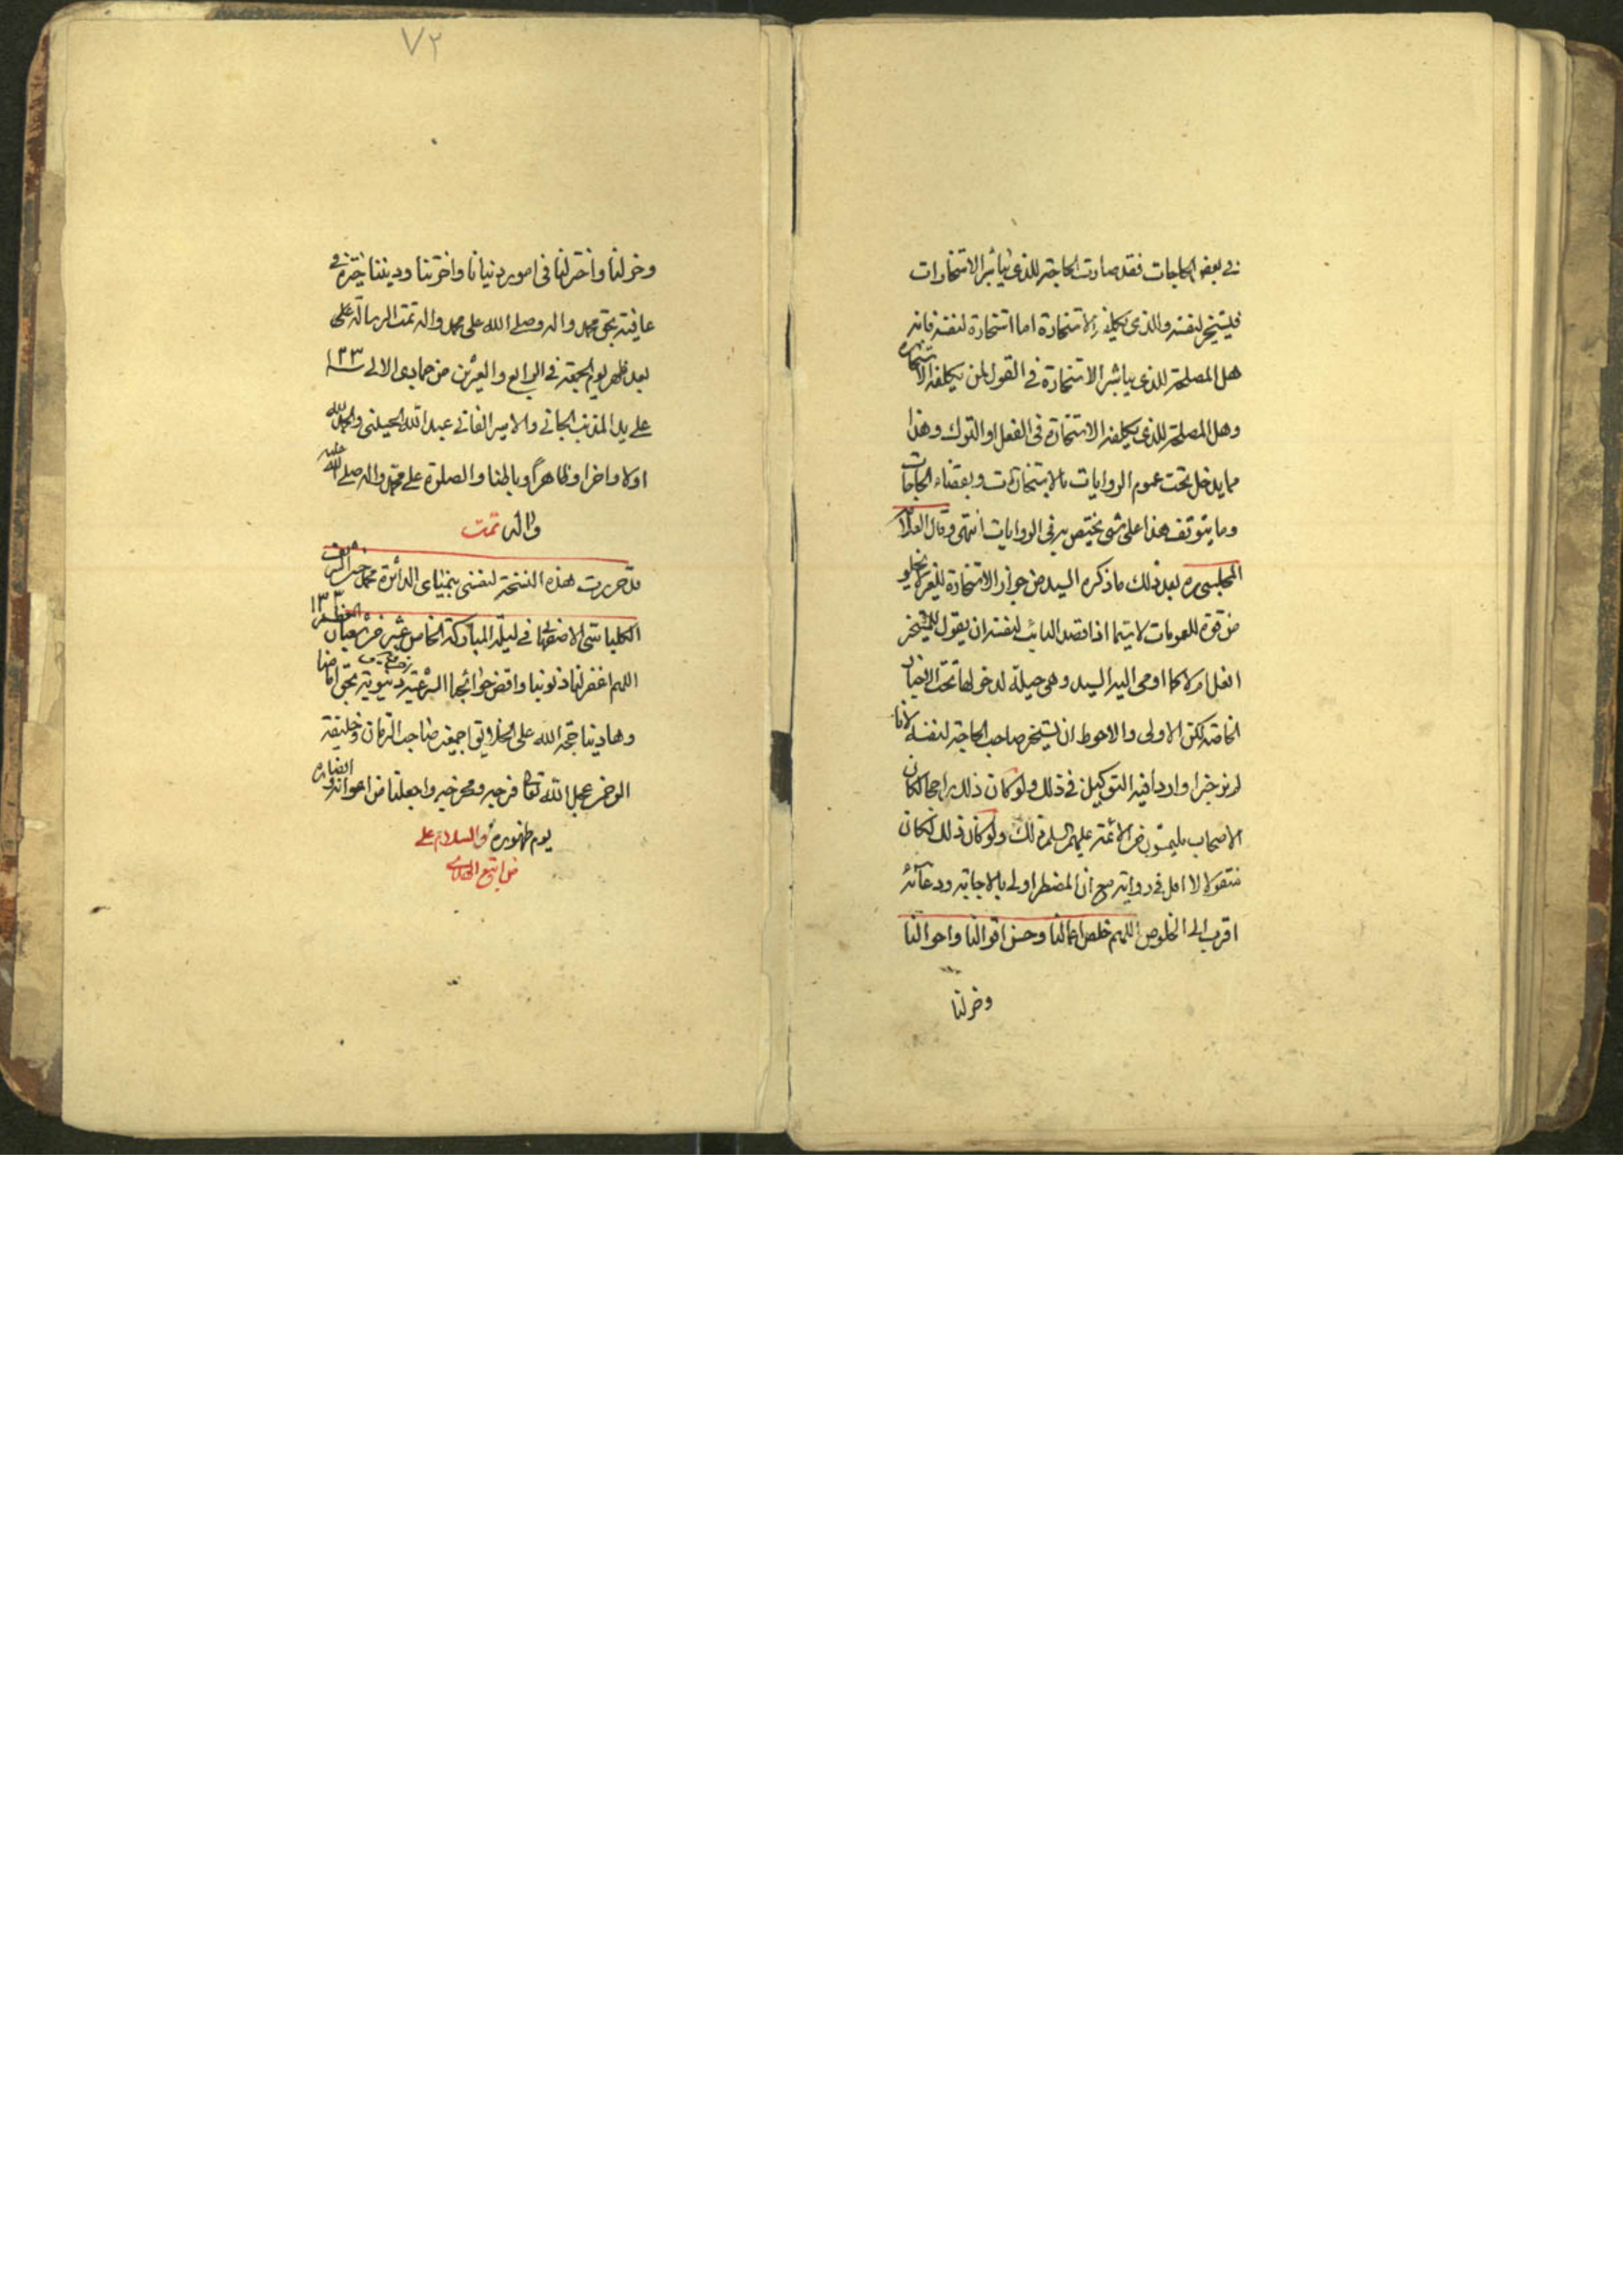 في بعض الحاجات فقد صارت الحاجة للذى يباشر الاستخارات
فليستخير لنفسه وللذى يكلفه الاستخارة اما استخارة لنفسه فانه
هل المصلحة للذى يباشر الاستخارة فى القول لمن يكلفه الاستخاره
وهل المصلحة للذى يكلفه الاستخارة فى الفعل او الترك وهذا
مما يدخل تحت عموم الروايات بالاستخارات وبقضاء الحاجات
وما يتوقف هذا على شئ يختص به فى الروايات انتهى وقال العلامة
المجلسى ره بعد ذلك ما ذكره السيد من جواز الاستخارة للغير لا يخلو
من قوة للعمومات لا سيما اذا قصد النائب لنفسه ان يقول للمستخير
افعل ام لا كما اومى اليه السيد وهى حيلة لدخولها تحت الاخبار
الخاصة لكن الاولى والاحوط ان يستخير صاحب الحاجة لنفسه لانا
لم نر خبرا واردا فيه التوكيل فى ذلك ولو كان ذلك راجحا لكان
الاصحاب يلتمسون من الائمة عليهم السلم ذلك ولو كان ذلك لكان
منقولا لا اقل فى رواية مع ان المضطر اولى بالاجابة ودعائه
اقرب الى الخلوص اللهم خلص اعمالنا وحسن اقوالنا واحوالنا
وخر لنا
٧٢
وخر لنا واختر لنا فى امور دنيانا واخرتنا وديننا خيرة فى
عافية بحق محمد واله وصلى الله على محمد واله تمت الرسالة على
بعد ظهر يوم الجمعة فى الرابع والعشرين من جمادى الاولى
على يد المذنب الجانى والاسير الفانى عبد الله الحسينى والحمد لله
اولا واخرا وظاهرا وباطنا والصلوة على محمد واله صلى الله عليه
واله تمت
قد حررت هذه النسخة لنفسى بيمناى الداثرة محمد
الكلباسى الاصفهانى فى ليلة المباركة الخامس عشر من شعبان المعظم
اللهم اغفر لنا ذنوبنا واقض حوائجنا الشرعية دنيوية بحق امامنا
وهادينا حجة الله على الخلايق اجمعين صاحب الزمان وخليفة
الرحمن عجل الله تعالى فرجه ومخرجه واجعلنا من اعوانه وانصاره
يوم ظهوره والسلام على
من اتبع الهدى